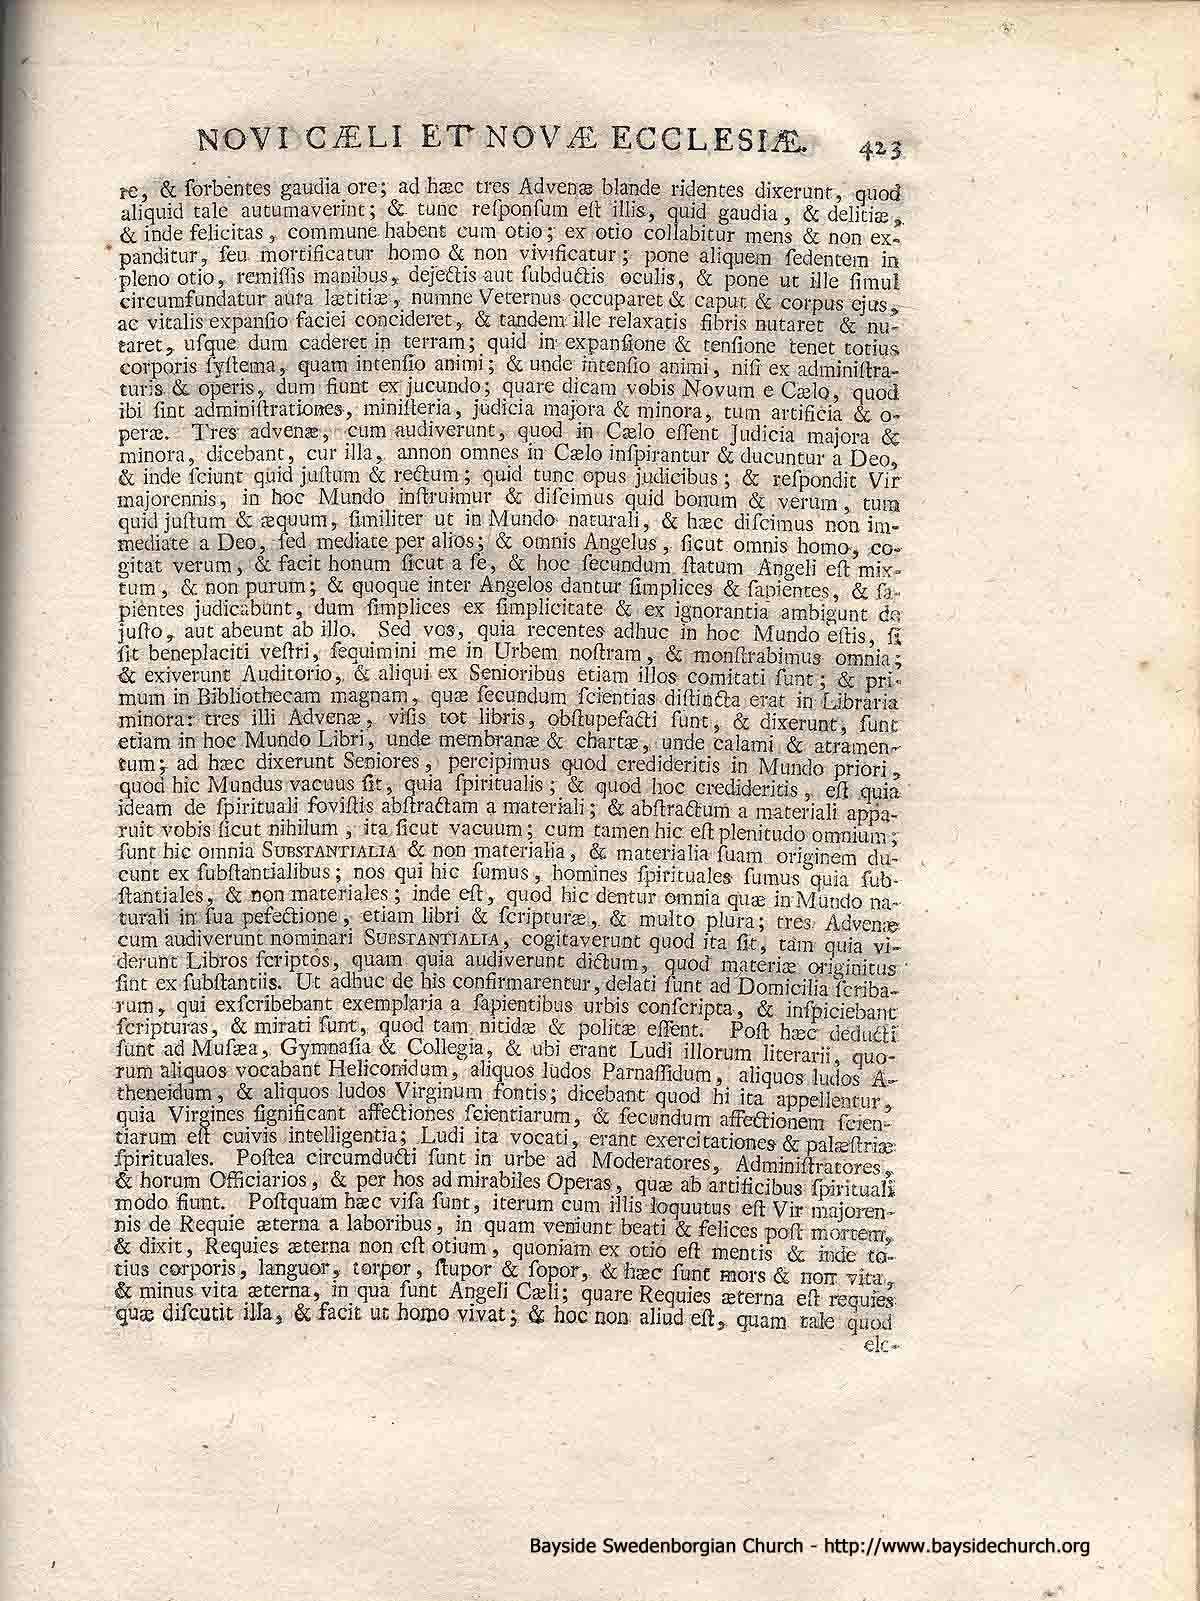 NOVI CÆLI ET NOVÆ ECCLESIÆ. 423
re, & ſorbentes gaudia ore; ad hæc tres Advenæ blande ridentes dixerunt, quod
aliquid tale autumaverint; & tunc reſponſum eſt illis, quid gaudia, & delitiæ,
& inde felicitas, commune habent cum otio; ex otio collabitur mens & non ex-
panditur, ſeu mortificatur homo & non vivificatur; pone aliquem ſedentem in
pleno otio, remiſſis manibus, dejectis aut ſubductis oculis, & pone ut ille ſimul
circumfundatur aura lætitiæ, numne Veternus occuparet & caput & corpus ejus,
ac vitalis expanſio faciei concideret, & tandem ille relaxatis fibris nutaret & nu-
taret, uſque dum caderet in terram; quid in expanſione & tenſione tenet totius
corporis ſyſtema, quam intenſio animi; & unde intenſio animi, niſi ex adminiſtra-
turis & operis, dum fiunt ex jucundo; quare dicam vobis Novum e Cælo, quod
ibi ſint adminiſtrationes, miniſteria, judicia majora & minora, tum artificia & o-
peræ. Tres advenæ, cum audiverunt, quod in Cælo eſſent Judicia majora &
minora, dicebant, cur illa, annon omnes in Cælo inſpirantur & ducuntur a Deo,
& inde ſciunt quid juſtum & rectum; quid tunc opus judicibus; & reſpondit Vir
majorennis, in hoc Mundo inſtruimur & diſcimus quid bonum & verum, tum
quid juſtum & æquum, ſimiliter ut in Mundo naturali, & hæc diſcimus non im-
mediate a Deo, ſed mediate per alios; & omnis Angelus, ſicut omnis homo, co-
gitat verum, & facit honum ſicut a ſe, & hoc ſecundum ſtatum Angeli eſt mix-
tum, & non purum; & quoque inter Angelos dantur ſimplices & ſapientes, & ſa-
pientes judicabunt, dum ſimplices ex ſimplicitate & ex ignorantia ambigunt de
juſto, aut abeunt ab illo. Sed vos, quia recentes adhuc in hoc Mundo eſtis, ſi
ſit beneplaciti veſtri, ſequimini me in Urbem noſtram, & monſtrabimus omnia;
& exiverunt Auditorio, & aliqui ex Senioribus etiam illos comitati ſunt; & pri-
mum in Bibliothecam magnam, quæ ſecundum ſcientias diſtincta erat in Libraria
minora: tres illi Advenæ, viſis tot libris, obſtupefacti ſunt, & dixerunt, ſunt
etiam in hoc Mundo Libri, unde membranæ & chartæ, unde calami & atramen-
tum; ad hæc dixerunt Seniores, percipimus quod credideritis in Mundo priori,
quod hic Mundus vacuus ſit, quia ſpiritualis; & quod hoc credideritis, eſt quia
ideam de ſpirituali foviſtis abſtractam a materiali; & abſtractum a materiali appa-
ruit vobis ſicut nihilum, ita ſicut vacuum; cum tamen hic eſt plenitudo omnium;
ſunt hic omnia SUBSTANTIALIA & non materialia, & materialia ſuam originem du-
cunt ex ſubſtantialibus; nos qui hic ſumus, homines ſpirituales ſumus quia ſub-
ſtantiales, & non materiales; inde eſt, quod hic dentur omnia quæ in Mundo na-
turali in ſua pefectione, etiam libri & ſcripturæ, & multo plura; tres Advenæ
cum audiverunt nominari SUBSTANTIALIA, cogitaverunt quod ita ſit, tam quia vi-
derunt Libros ſcriptos, quam quia audiverunt dictum, quod materiæ originitus
ſint ex ſubſtantiis. Ut adhuc de his confirmarentur, delati ſunt ad Domicilia ſcriba-
rum, qui exſcribebant exemplaria a ſapientibus urbis conſcripta, & inſpiciebant
ſcripturas, & mirati ſunt, quod tam nitidæ & politæ eſſent. Poſt hæc deducti
ſunt ad Muſæa, Gymnaſia & Collegia, & ubi erant Ludi illorum literarii, quo-
rum aliquos vocabant Heliconidum, aliquos ludos Parnaſſidum, aliquos ludos A-
theneidum, & aliquos ludos Virginum fontis; dicebant quod hi ita appellentur,
quia Virgines ſignificant affectiones ſcientiarum, & ſecundum affectionem ſcien-
tiarum eſt cuivis intelligentia; Ludi ita vocati, erant exercitationes & palæſtriæ
ſpirituales. Poſtea circumducti ſunt in urbe ad Moderatores, Adminiſtratores,
& horum Officiarios, & per hos ad mirabiles Operas, quæ ab artificibus ſpirituali
modo fiunt. Poſtquam hæc viſa ſunt, iterum cum illis loquutus eſt Vir majoren-
nis de Requie æterna a laboribus, in quam veniunt beati & felices poſt mortem,
& dixit, Requies æterna non eſt otium, quoniam ex otio eſt mentis & inde to-
tius corporis, languor, torpor, ſtupor & ſopor, & hæc ſunt mors & non vita,
& minus vita æterna, in qua ſunt Angeli Cæli; quare Requies æterna eſt requies
quæ diſcutit illa, & facit ut homo vivat; & hoc non aliud eſt, quam tale quod
ele-
Bayside Swedenborgian Church - http://www.baysidechurch.org